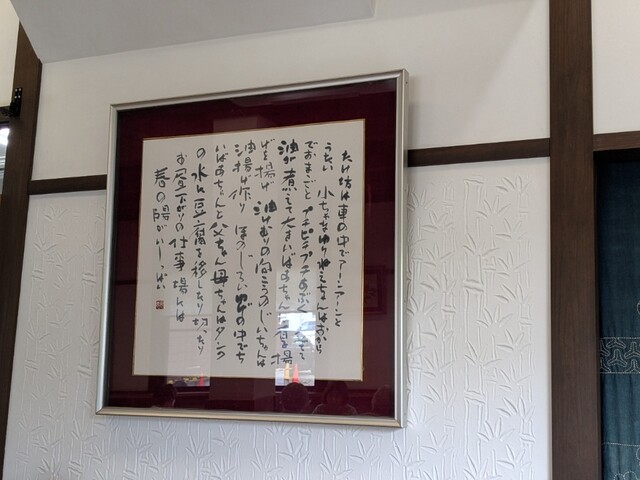 たけ坊は車の中でアーンアーンと
うたい 小ちゃなゆりねえちゃんはおから
でおままごと プチピチプチあぶく立てて
油が煮えて大きいばあちゃん厚揚
げを揚げ 油けむりの向こうのじいちゃんは
油揚げ作り ほの じろい の中でち
いばあちゃんと父ちゃん母ちゃんはタンク
の水に豆腐を移したり切ったり
お昼下がりの仕事場には
春の陽がいーっぱい